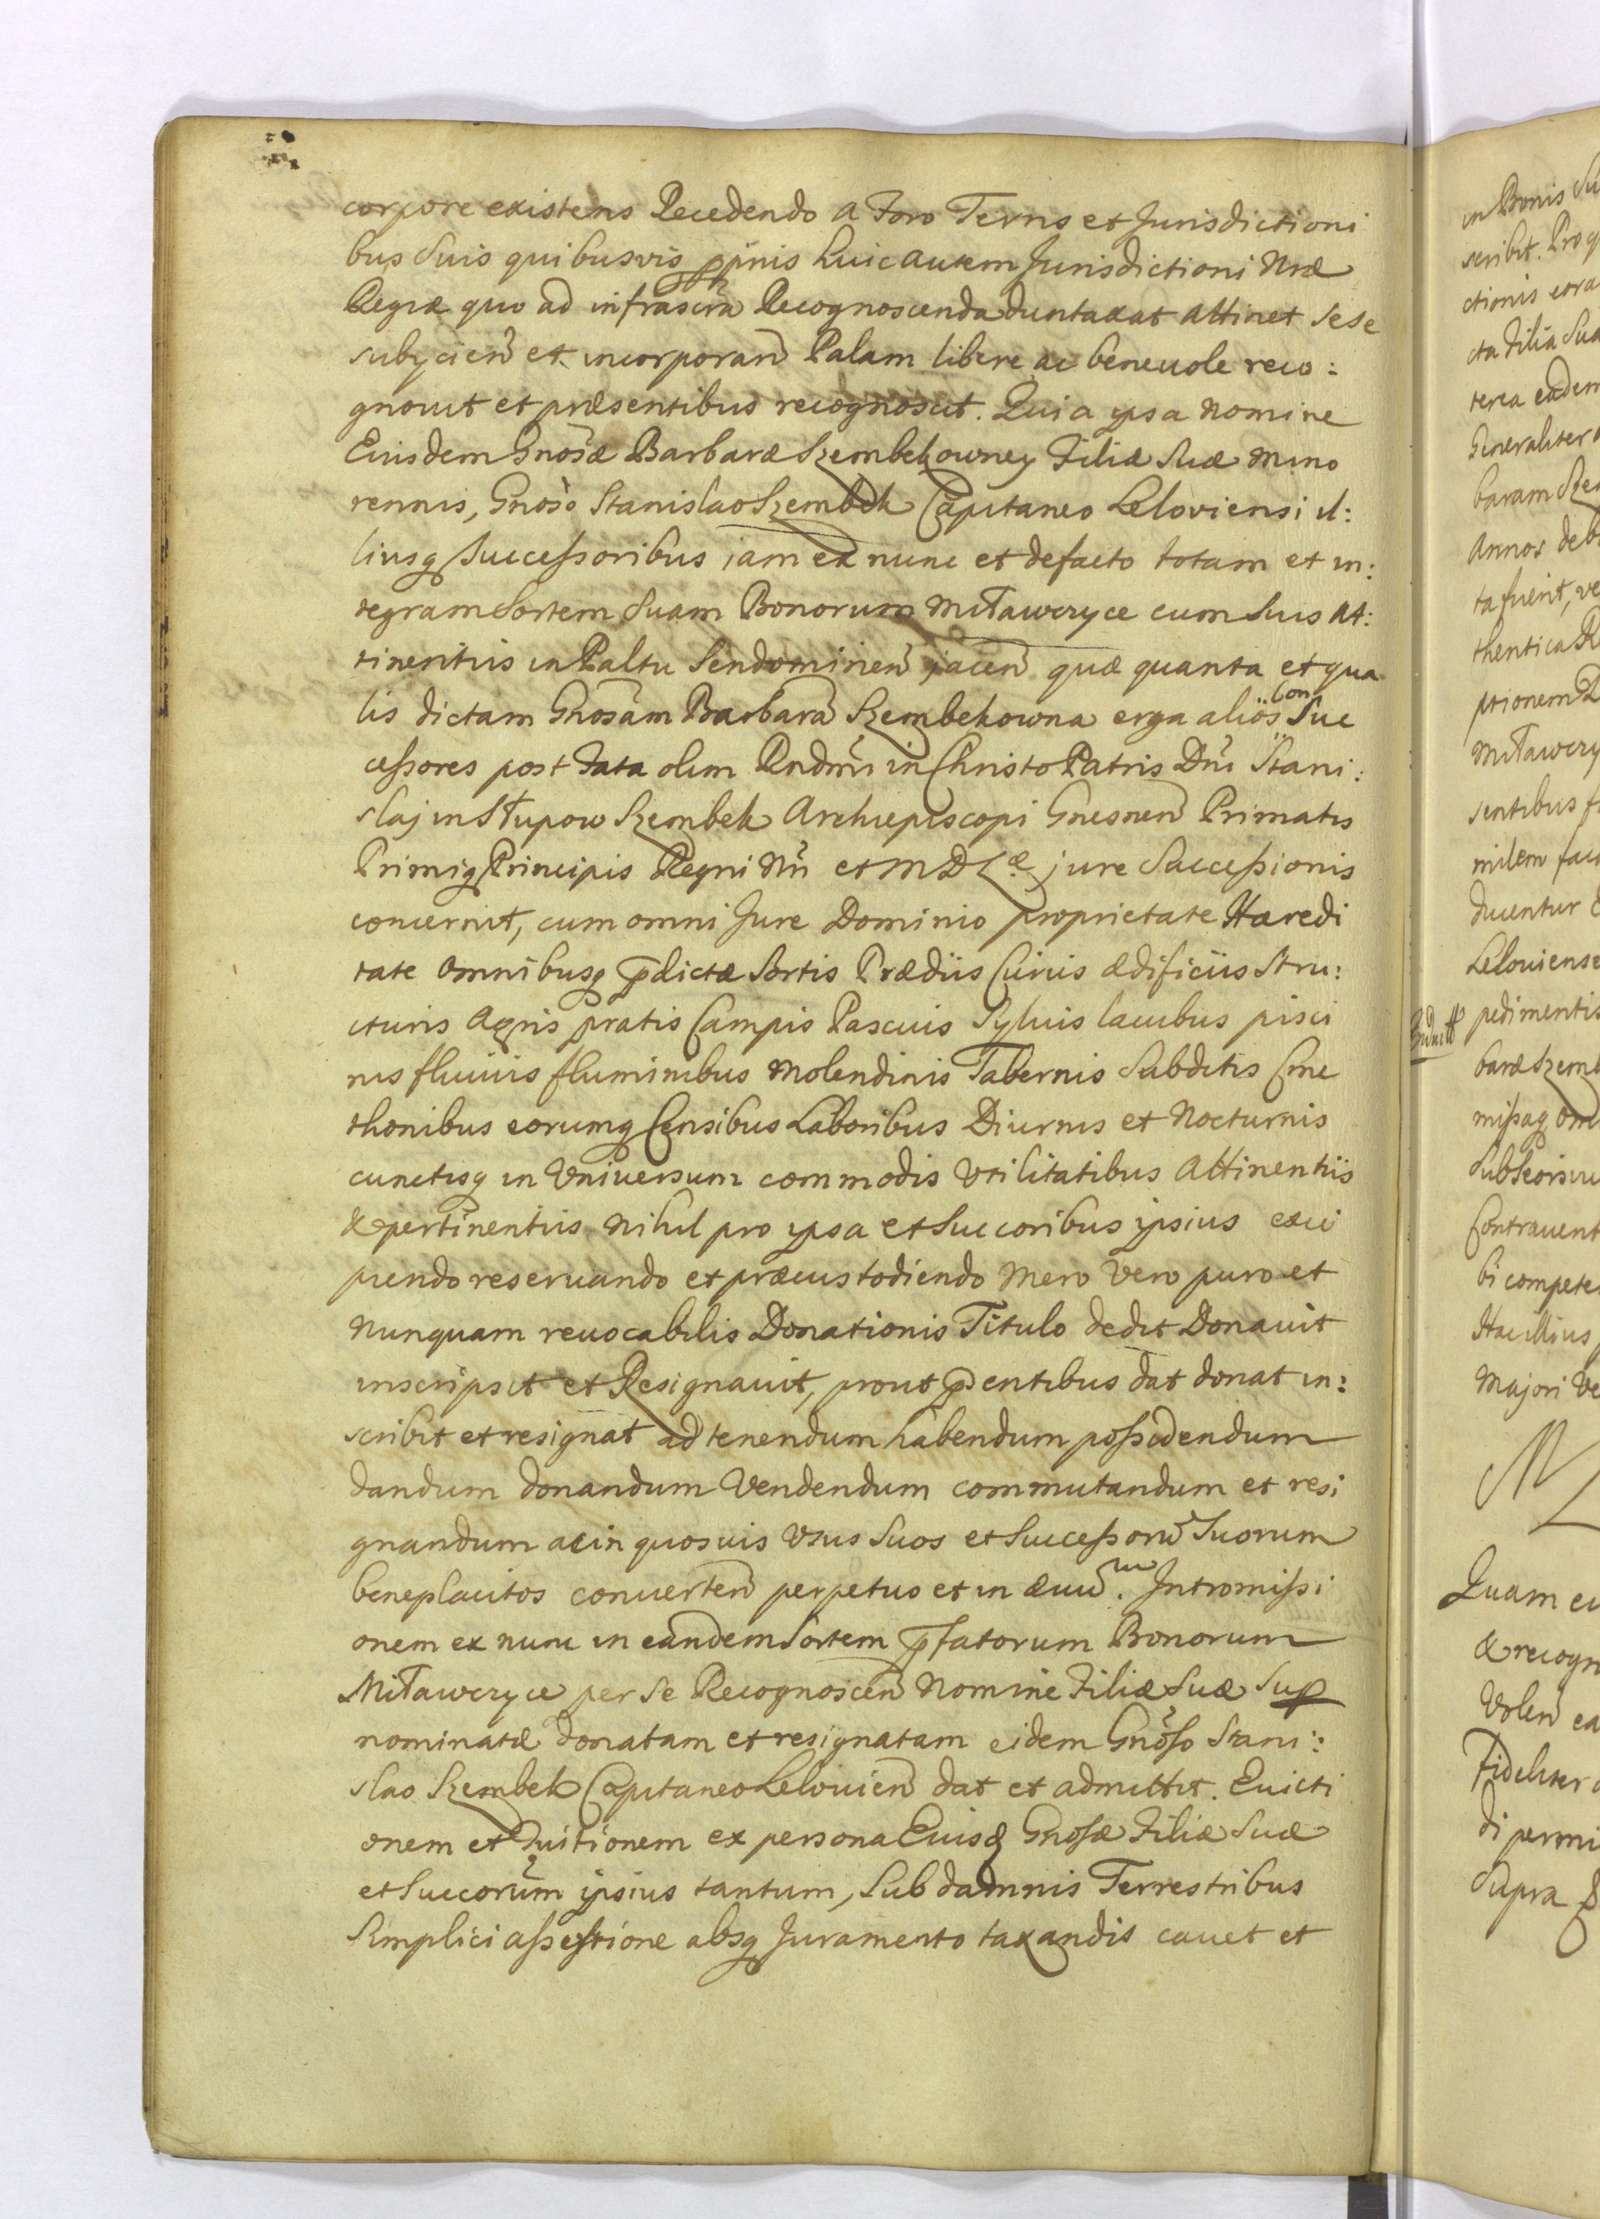 corpore existens Recedendo a Foro Terris et Jurisdictioni
bus Suis quibusvis ppriis huic autem Jurisdictioni Nræ
Regiæ quo ad infrascrta Recognoscenda duntaxat attinet sese
subijcien et incorporan Palam libere ac beneuole reco:
gnouit et præsentibus recognoscit. Quia ipsa nomine
Eiusdem Gnosæ Barbaræ Szembekowney Filiæ Suæ Mino
rennis, Gnoso Stanislao Szembek Capitaneo Leloviensi il:
liusq Successoribus iam ex nunc et defacto totam et in:
tegram Sortem Suam Bonorum Mitawczyce cum Suis At:
tinentiis in Paltu Sendomirien jacen quæ quanta et qua
lis dictam Gnosam Barbara Szembekowna erga alios Con Suc
cessores post Fata olim Rndmi in Christo Patris Dni Stani:
slaj in Słupow Szembek Archiepiscopi Gnesnen Primatis
Primiq Principis Regni Nri et M D L æ jure Successionis
concernit, cum omni Jure Dominio proprietate Hæredi
tate omnibusq pdictæ Sortis Prædiis Curiis ædificiis Stru:
cturis Agris pratis Campis Pascuis Sylvis lacubus pisci
nis fluviis fluminibus Molendinis Tabernis Subditis Cme
thonibus eorumq Censibus Laboribus Diurnis et Nocturnis
cunctisq in Universum commodis Utilitatibus Attinentiis
& pertinentiis nihil pro ipsa et Succoribus ipsius exci
piendo reseruando et præcustodiendo Mero Vero puro et
Nunquam reuocabilis Donationis Titulo dedit Donauit
inscripsit et Resignauit, prout psentibus dat donat in:
scribit et resignat ad tenendum habendum possidendum
dandum donandum Vendendum commutandum et resi
gnandum ac in quosuis Usus Suos et Successoru Suorum
beneplacitos conuerten perpetuo et in æuu m. Intromissi
onem ex nunc in eandem Sortem pfatorum Bonorum
Mitawczyce per se Recognoscen Nomine Filiæ Suæ Sup
nominatæ donatam et resignatam eidem Gnoso Stani:
slao Szembek Capitaneo Lelouien dat et admittit. Euicti
onem et Tuitionem ex persona Euisd Gnosæ Filiæ Suæ
et Succorum ipsius tantum, Sub damnis Terrestribus
Simplici assertione absq Juramento taxandis cauet et
in Bonis
scribit. Pro
ctionis
cta Filia Sua
terea eadem
Generaliter
baram
Annos
ta fuerit,
thentica
ptionem
Mitawczy
sentibus
milem
ducentur
Lelouiense
pedimentis
baræ Szemb
missaq
Contrauent
bi compete
majori
Quam
& recogn
Volen
Fideliter
di permi
Supra